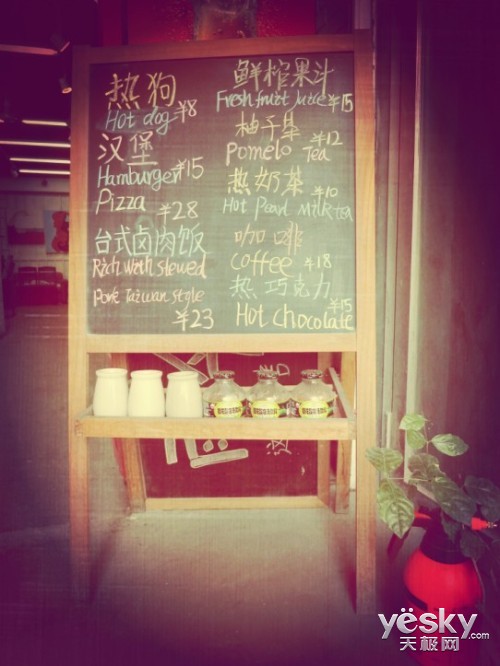 热狗
Hot dog ¥8
汉堡
Hamburger ¥15
Pizza ¥28
台式卤肉饭
Rich with stewed
Pork Taiwan style
¥23
鲜榨果汁
Fresh fruit juice ¥15
柚子茶
Pomelo Tea ¥12
热奶茶
Hot Pearl Milk tea ¥10
咖啡
coffee ¥18
热巧克力
Hot chocolate ¥15
yësky.com
天极网